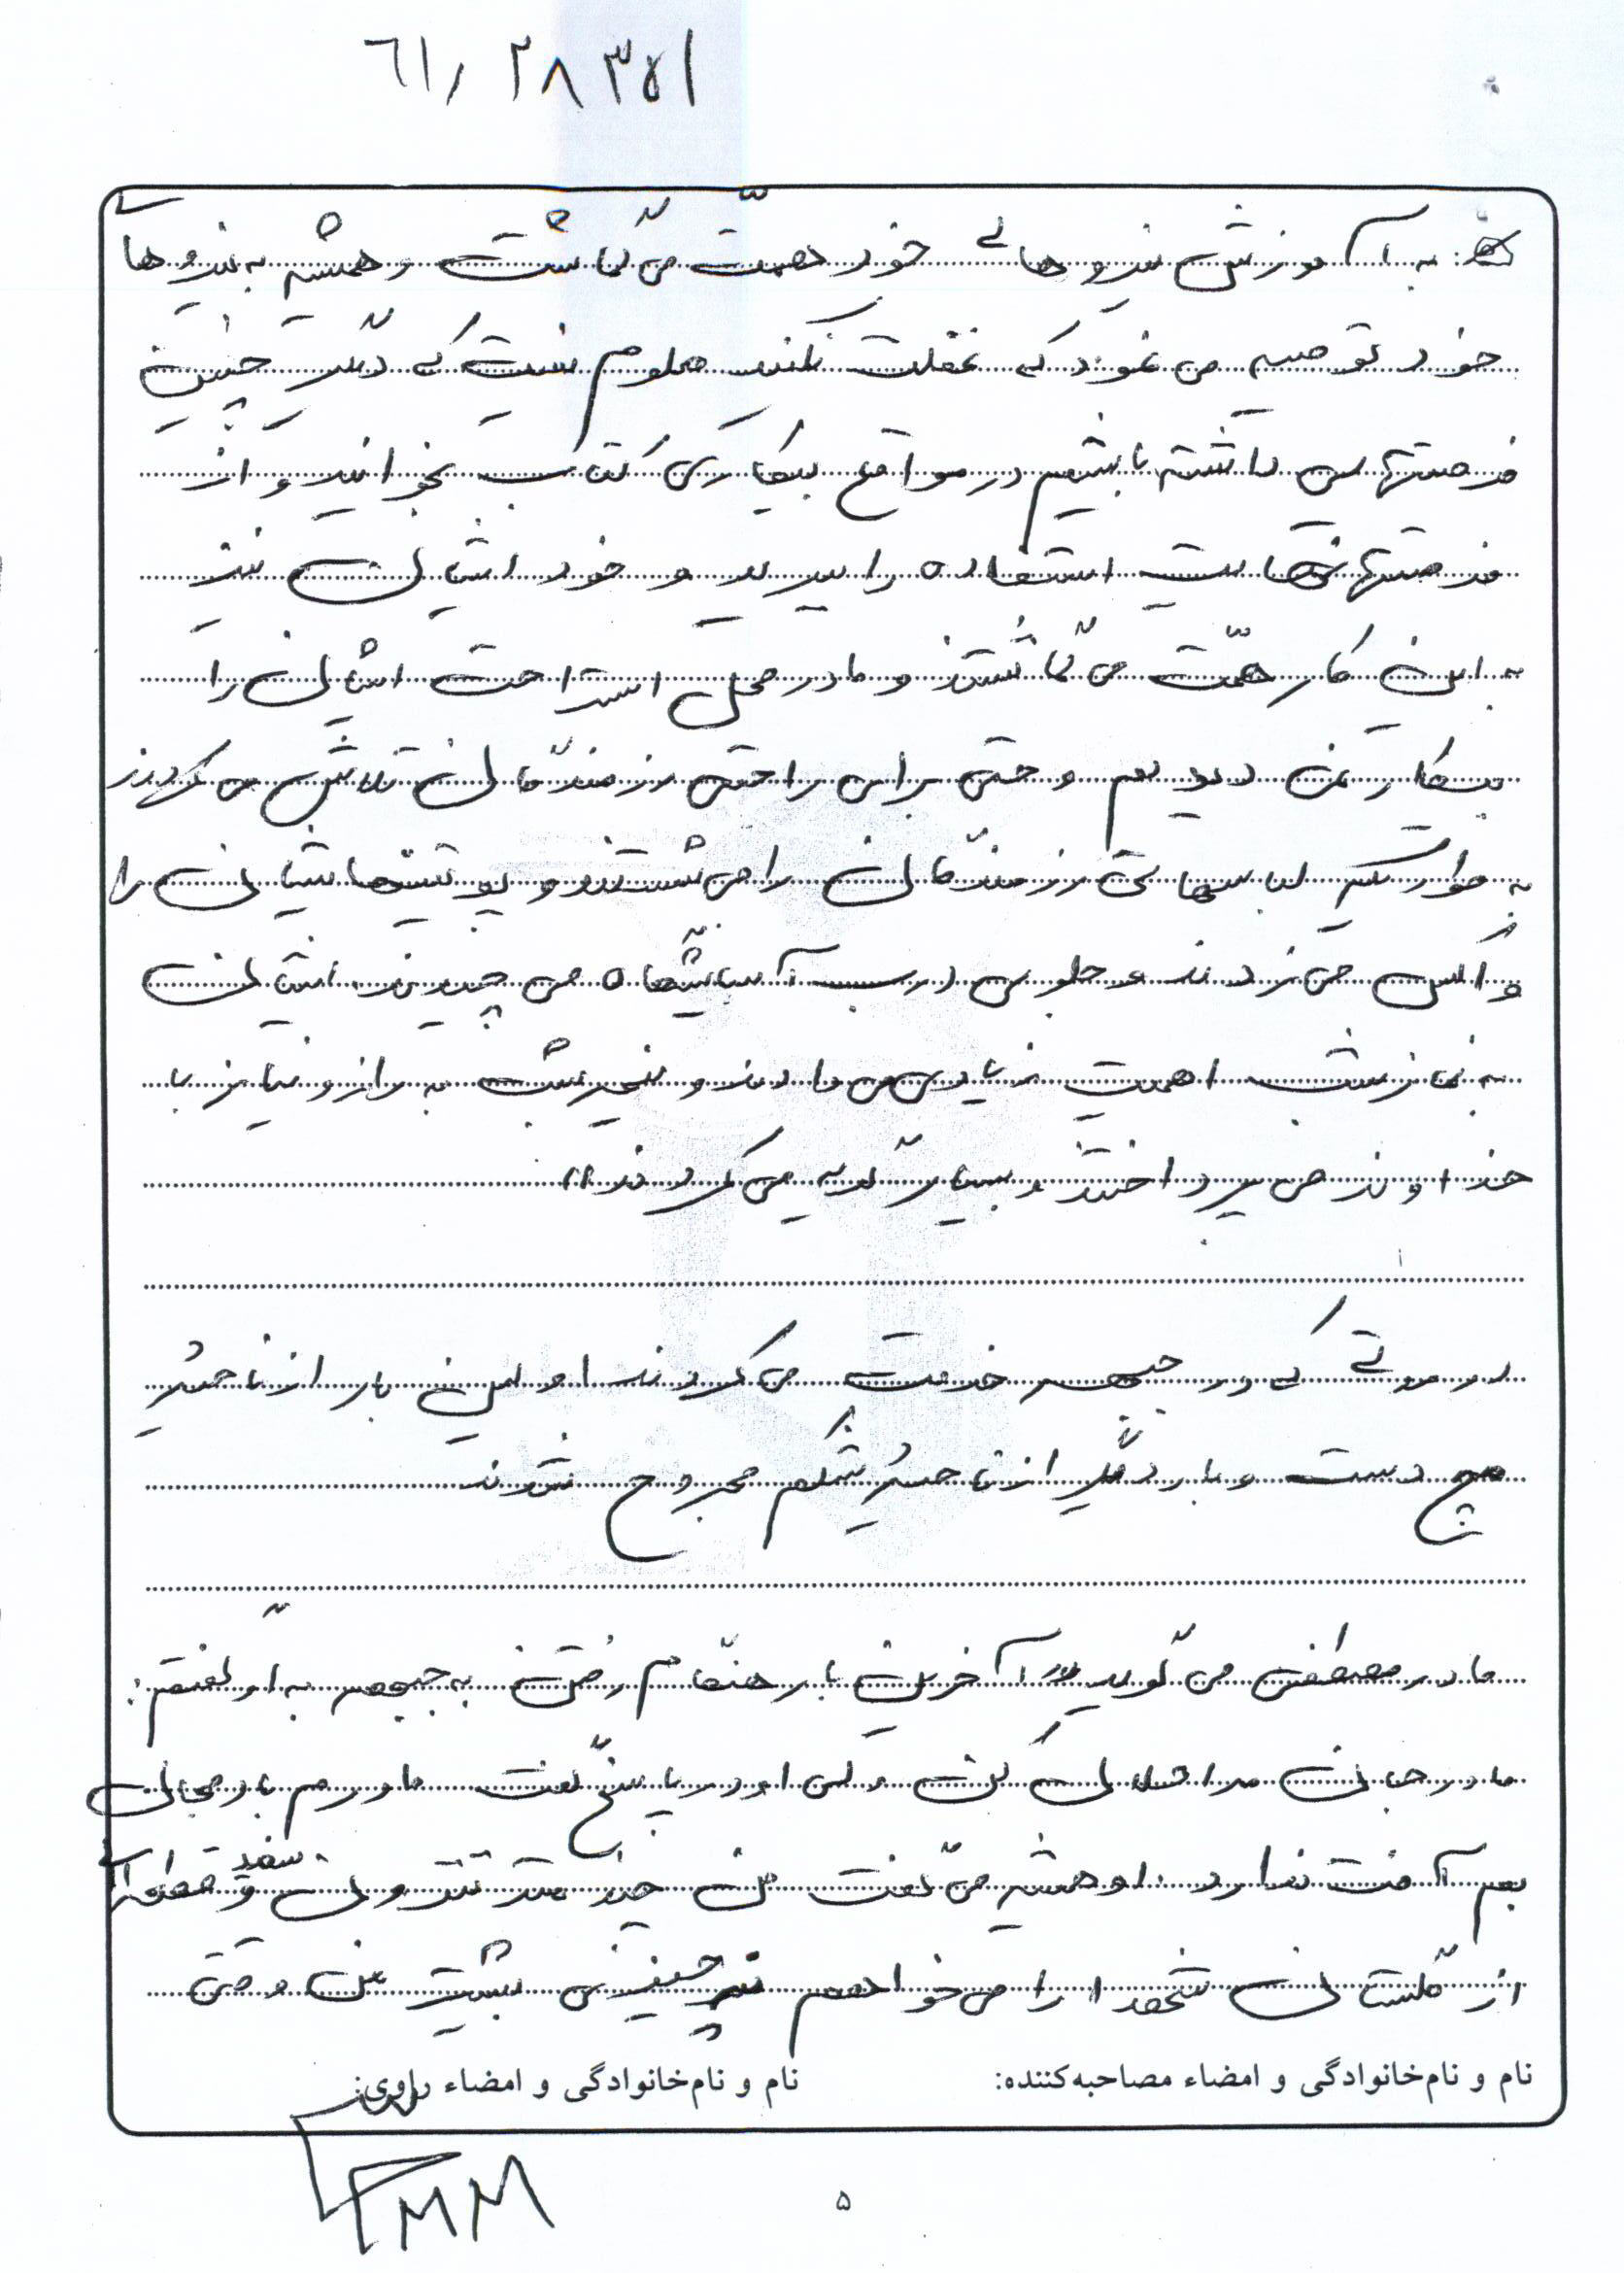 ۶۱/۲۸۳۵۱
به آموزش نیروهای خود همت می‌گماشت و همیشه به نیروهای
خود توصیه می نمود که غفلت نکنید معلوم نیست که دیگر چنین
فرصتهایی داشته باشیم در مواقع بیکاری کتاب بخوانید و از
فرصتها نهایت استفاده را ببرید و خود ایشان نیز
به این کار همت می گماشتند و ما در محل استراحت ایشان را
بیکار نمی دیدیم و حتی برای راحتی رزمندگان تلاش می کردند
به طوریکه لباسهای رزمندگان را می شستند و پوتینهایشان را
واکس می زدند و جلوی درب آسایشگاه می چیدند. ایشان
به نماز شب اهمیت زیادی می دادند و نیمه شب به راز و نیاز با
خداوند می پرداختند و بسیار گریه می کردند»
در مدتی که در جبهه خدمت می کردند اولین بار از ناحیهٔ
مچ دست و بار دیگر از ناحیهٔ شکم مجروح شدند
مادر مصطفی می گوید در آخرین بار هنگام رفتن به جبهه به او گفتم:
مادر جان مرا حلال کن ولی او در پاسخ گفت مادرم بادمجان
بم آفت ندارد. او همیشه می گفت من چند متر تترون سفید و قطعه‌ای
از گلستان شهدا را می خواهم نه چیزی بیشتر من وقتی
نام و نام‌خانوادگی و امضاء مصاحبه‌کننده: نام و نام‌خانوادگی و امضاء راوی:
۵